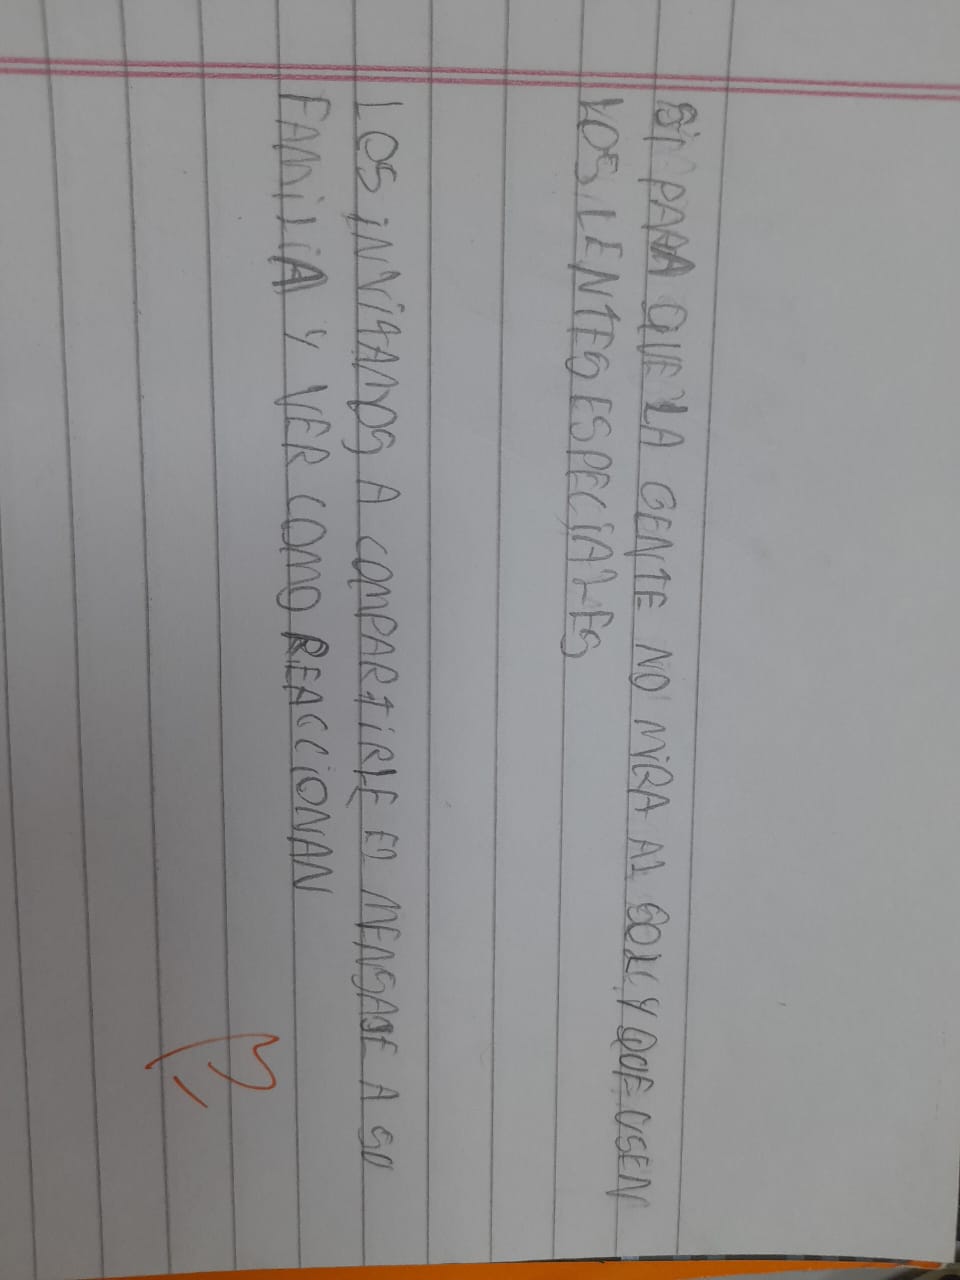 SI PARA QUE LA GENTE NO MIRA AL SOL Y QUE USEN
LOS LENTES ESPECIALES
LOS INVITAMOS A COMPARTIRLE EL MENSAJE A SU
FAMILIA Y VER COMO REACCIONAN